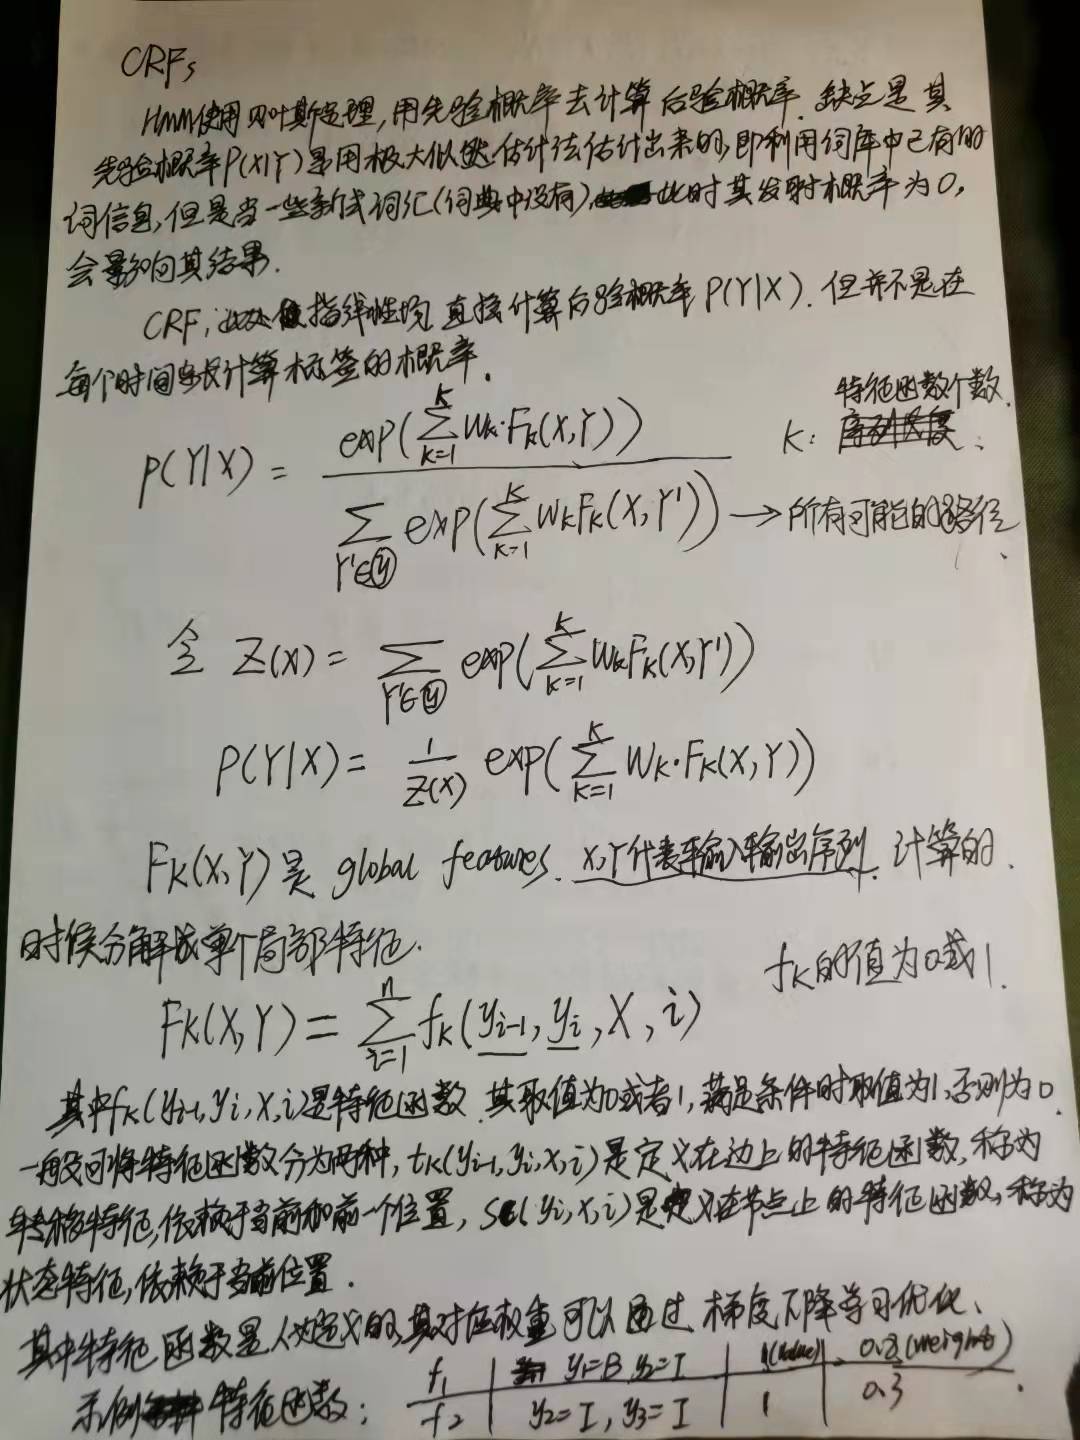 CRFs
HMM使用贝叶斯定理,用先验概率去计算后验概率.缺点是其
先验概率P(X|Y)是用极大似然估计法估计出来的,即利用词库中已有的
词信息,但是当一些新式词汇(词典中没有),此时其发射概率为0,
会影响其结果.
CRF,此处指线性场,直接计算后验概率P(Y|X).但并不是在
每个时间步长计算标签的概率.
特征函数个数.
P(Y|X) = exp(∑_{k=1}^{K} W_k·F_k(X,Y)) / ∑_{Y'∈𝒴} exp(∑_{k=1}^{K} W_kF_k(X,Y')) → 所有可能的路径、
K:
令 Z(X) = ∑_{Y'∈𝒴} exp(∑_{k=1}^{K} W_kF_k(X,Y'))
P(Y|X) = 1/Z(X) exp(∑_{k=1}^{K} W_k·F_k(X,Y))
F_k(X,Y)是 global features. X,Y代表输入输出序列. 计算的.
时候分解成单个局部特征.
f_k的值为0或1.
F_k(X,Y) = ∑_{i=1}^{n} f_k(y_{i-1}, y_i, X, i)
其中f_k(y_{i-1},y_i,X,i)是特征函数 其取值为0或者1,满足条件时取值为1,否则为0.
一般可将特征函数分为两种,t_k(y_{i-1},y_i,x,i)是定义在边上的特征函数,称为
转移特征,依赖于当前和前一个位置,s(y_i,x,i)是定义在节点上的特征函数,称为
状态特征,依赖于当前位置.
其中特征函数是人为定义的,其对应权重可以通过梯度下降学习优化、
示例特征函数: f1 | y1=B y2=I | 1(value) | 0.8(weight)
f2 | y2=I, y3=I | 1 | 0.3